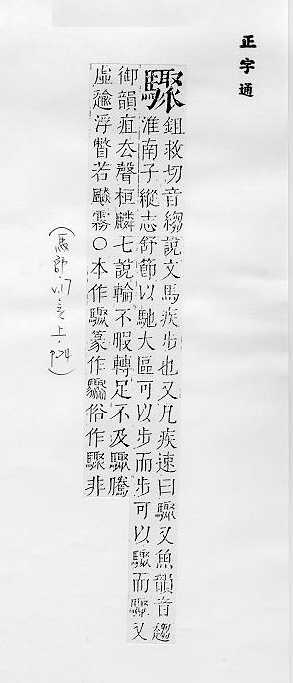 正字通
驟
鉏救切音縐說文馬疾步也又凡疾速曰驟又魚韻音趨
淮南子縱志舒節以馳大區可以步而步可以驟而驟又
御韻疽去聲桓麟七說輪不暇轉足不及驟騰
虛逾浮瞥若飈霧○本作驟篆作驟俗作驟非
(馬部.